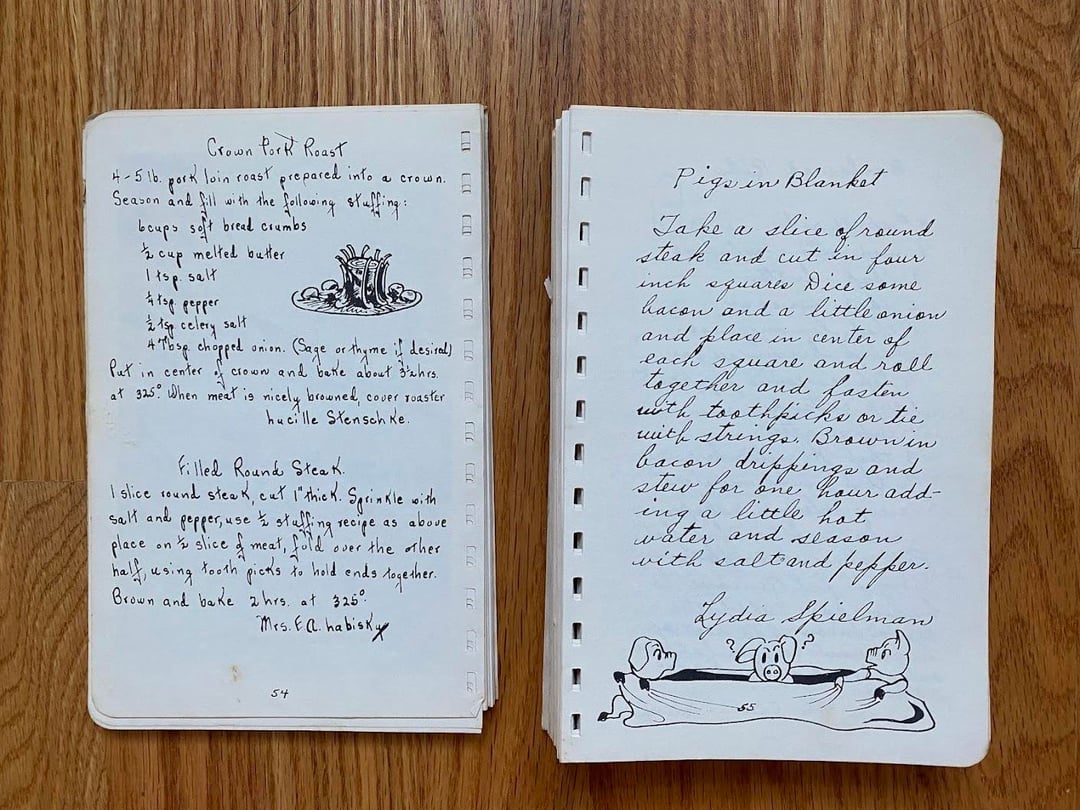 Crown Pork Roast
4-5 lb. pork loin roast prepared into a crown.
Season and fill with the following stuffing:
6 cups soft bread crumbs
½ cup melted butter
1 tsp. salt
¼ tsp. pepper
½ tsp celery salt
4 Tbsp. chopped onion. (Sage or thyme if desired)
Put in center of crown and bake about 3½ hrs.
at 325°. When meat is nicely browned, cover roaster
Lucille Stenschke.
Filled Round Steak.
1 slice round steak, cut 1" thick. Sprinkle with
salt and pepper, use ½ stuffing recipe as above
place on ½ slice of meat, fold over the other
half, using tooth picks to hold ends together.
Brown and bake 2 hrs. at 325°.
Mrs. F.A. Labisky
54
Pigs in Blanket
Take a slice of round
steak and cut in four
inch squares Dice some
bacon and a little onion
and place in center of
each square and roll
together and fasten
with toothpicks or tie
with strings. Brown in
bacon drippings and
stew for one hour add-
ing a little hot
water and season
with salt and pepper.
Lydia Spielman
? ?
55